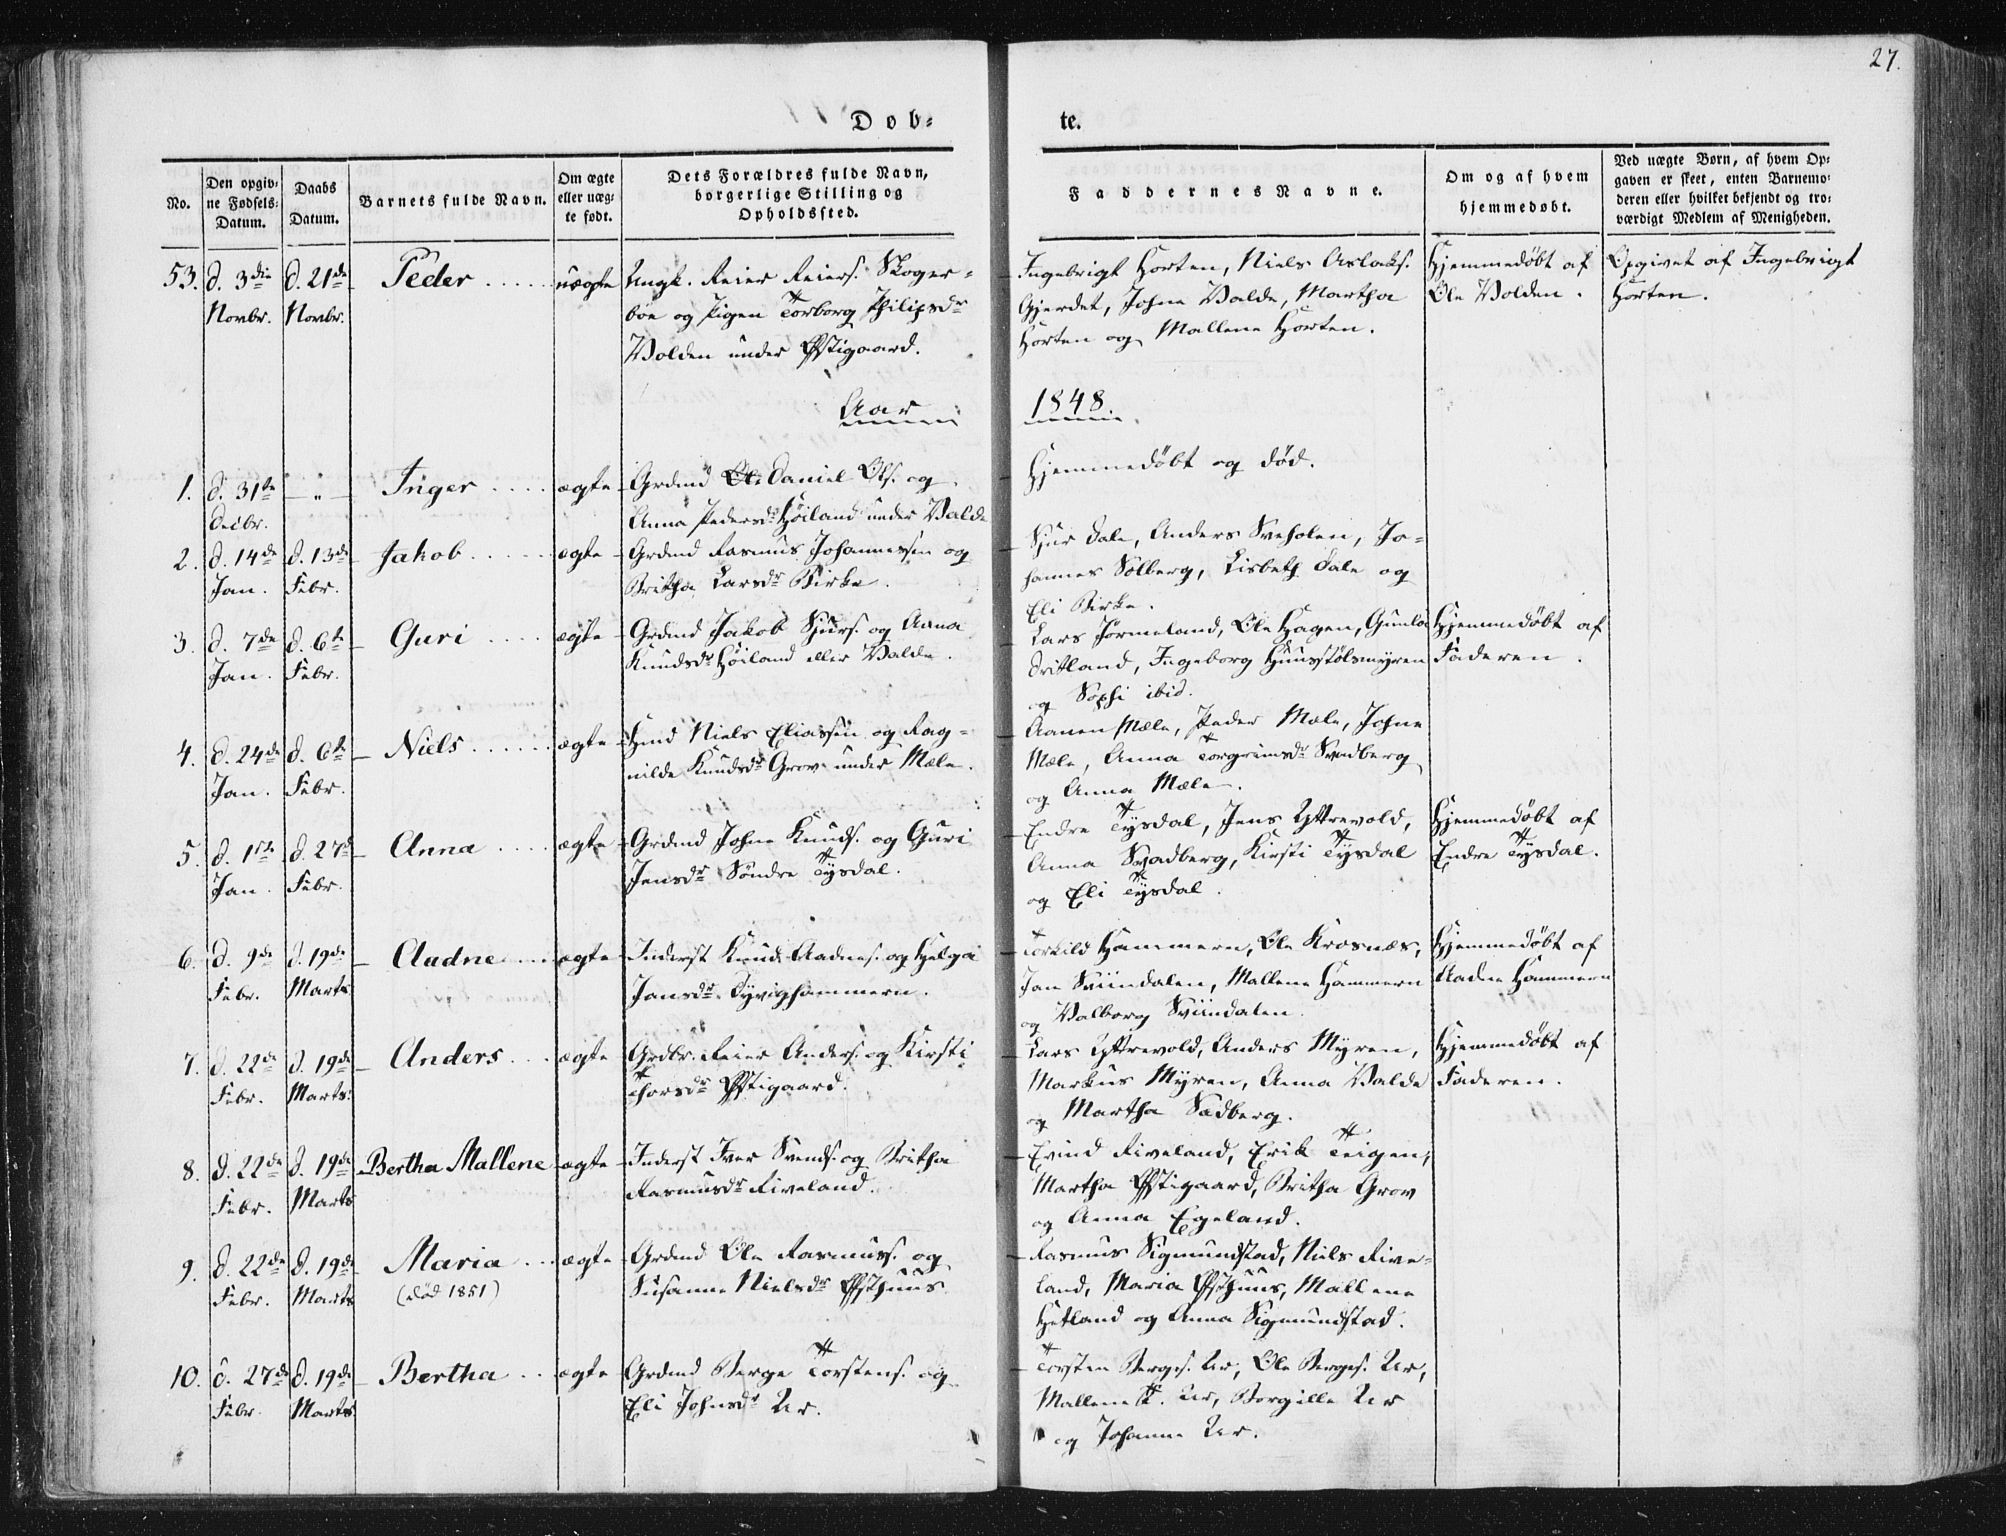 27.
Dob=
te.
No.
Den opgiv=
ne Fødsels=
Datum.
Daabs
Datum.
Barnets fulde Navn.
Om ægte
eller uæg=
te født.
Dets Forældres fulde Navn,
borgerlige Stilling og
Opholdssted.
Faddernes Navne.
Om og af hvem
hjemmedøbt.
Ved uægte Børn, af hvem Op=
gaven er skeet, enten Barnemo=
deren eller hvilket bekjendt og tro=
værdigt Medlem af Menigheden.
53. d. 3die Novbr. d. 21de Novbr. Peder uægte
Ungk. Reier Reiers. Skoger=
boe og Pigen Torborg Philipsdr
Volden under Østigaard.
Ingebrigt Horten, Niels Aslaks.
Gjerdet, Johne Valde, Martha
Horten og Mallene Horten.
Hjemmedøbt af
Ole Volden.
Opgivet af Ingebrigt
Horten.
Aar 1848.
1. d. 31te Decbr. — " — Inger ægte
Grdmd Daniel Ols. og
Anna Pedersdr Høiland under Valde
Hjemmedøbt og død.
2. d. 14de Jan. d. 13de Febr. Jakob ægte
Grdmd Rasmus Johannessen og
Britha Larsdr Birke.
Sjur Dale, Anders Sveholen, Jo=
hannes Solberg, Lisbeth Dale og
Eli Birke.
3. d. 7de Jan. d. 6te Febr. Guri ægte
Grdmd Jakob Sjurs. og Anna
Knudsdr Høiland eller Valde.
Lars Jørmeland, Ole Hagen, Gunla
Dritland, Ingeborg Huusstølsmyren
og Sophi ibid.
Hjemmedøbt af
Faderen.
4. d. 24de Jan. d. 6te Febr. Niels ægte
Hmd Niels Eliassen og Rag=
nilde Knudsdr Grov under Mæle.
Aanen Mæle, Peder Mæle, Johne
Mæle, Anna Torgrimsdr Svadberg
og Anna Mæle.
5. d. 1ste Jan. d. 27d Febr. Anna ægte
Grdmd Johne Knuds. og Guri
Jensdr Søndre Tysdal.
Endre Tysdal, Jens Yttrevold,
Anna Svadberg, Kirsti Tysdal
og Eli Tysdal.
Hjemmedøbt af
Endre Tysdal.
6. d. 9de Febr. d. 19de Marts Aadne ægte
Inderst Knud Aadnes. og Helga
Jansdr Tyvighammern.
Torkild Hammern, Ole Krosnæs,
Jan Sviindalen, Mallene Hammern
og Valborg Sviindalen.
Hjemmedøbt af
Aadne Hammern
7. d. 22de Febr. d. 19de Marts. Anders ægte
Grdbr. Reier Anders. og Kirsti
Thorsdr Østigaard.
Lars Yttrevold, Anders Myren,
Markus Myren, Anna Valde
og Martha Sædberg.
Hjemmedøbt af
Faderen.
8. d. 22de Febr. d. 19de Marts Bertha Mallene ægte
Inderst Iver Svends. og Britha
Rasmusdr Riveland.
Evind Riveland, Erik Teigen,
Martha Østigaard, Britha Grov
og Anna Egeland.
9. d. 22de Febr. d. 19de Marts Maria ægte
(død 1851)
Grdmd Ole Rasmuss. og
Susanne Nielsdr Østhuus.
Rasmus Sigmundstad, Niels Rive=
land, Maria Østhuus, Mallene
Hetland og Anna Sigmundstad.
10. d. 27de Febr. d. 19de Marts Bertha ægte
Grdmd Berge Torstens. og
Eli Johnsdr Ur.
Torsten Berges. Ur, Ole Berges. Ur,
Mallene T. Ur, Borgille Ur
og Johanne Ur.